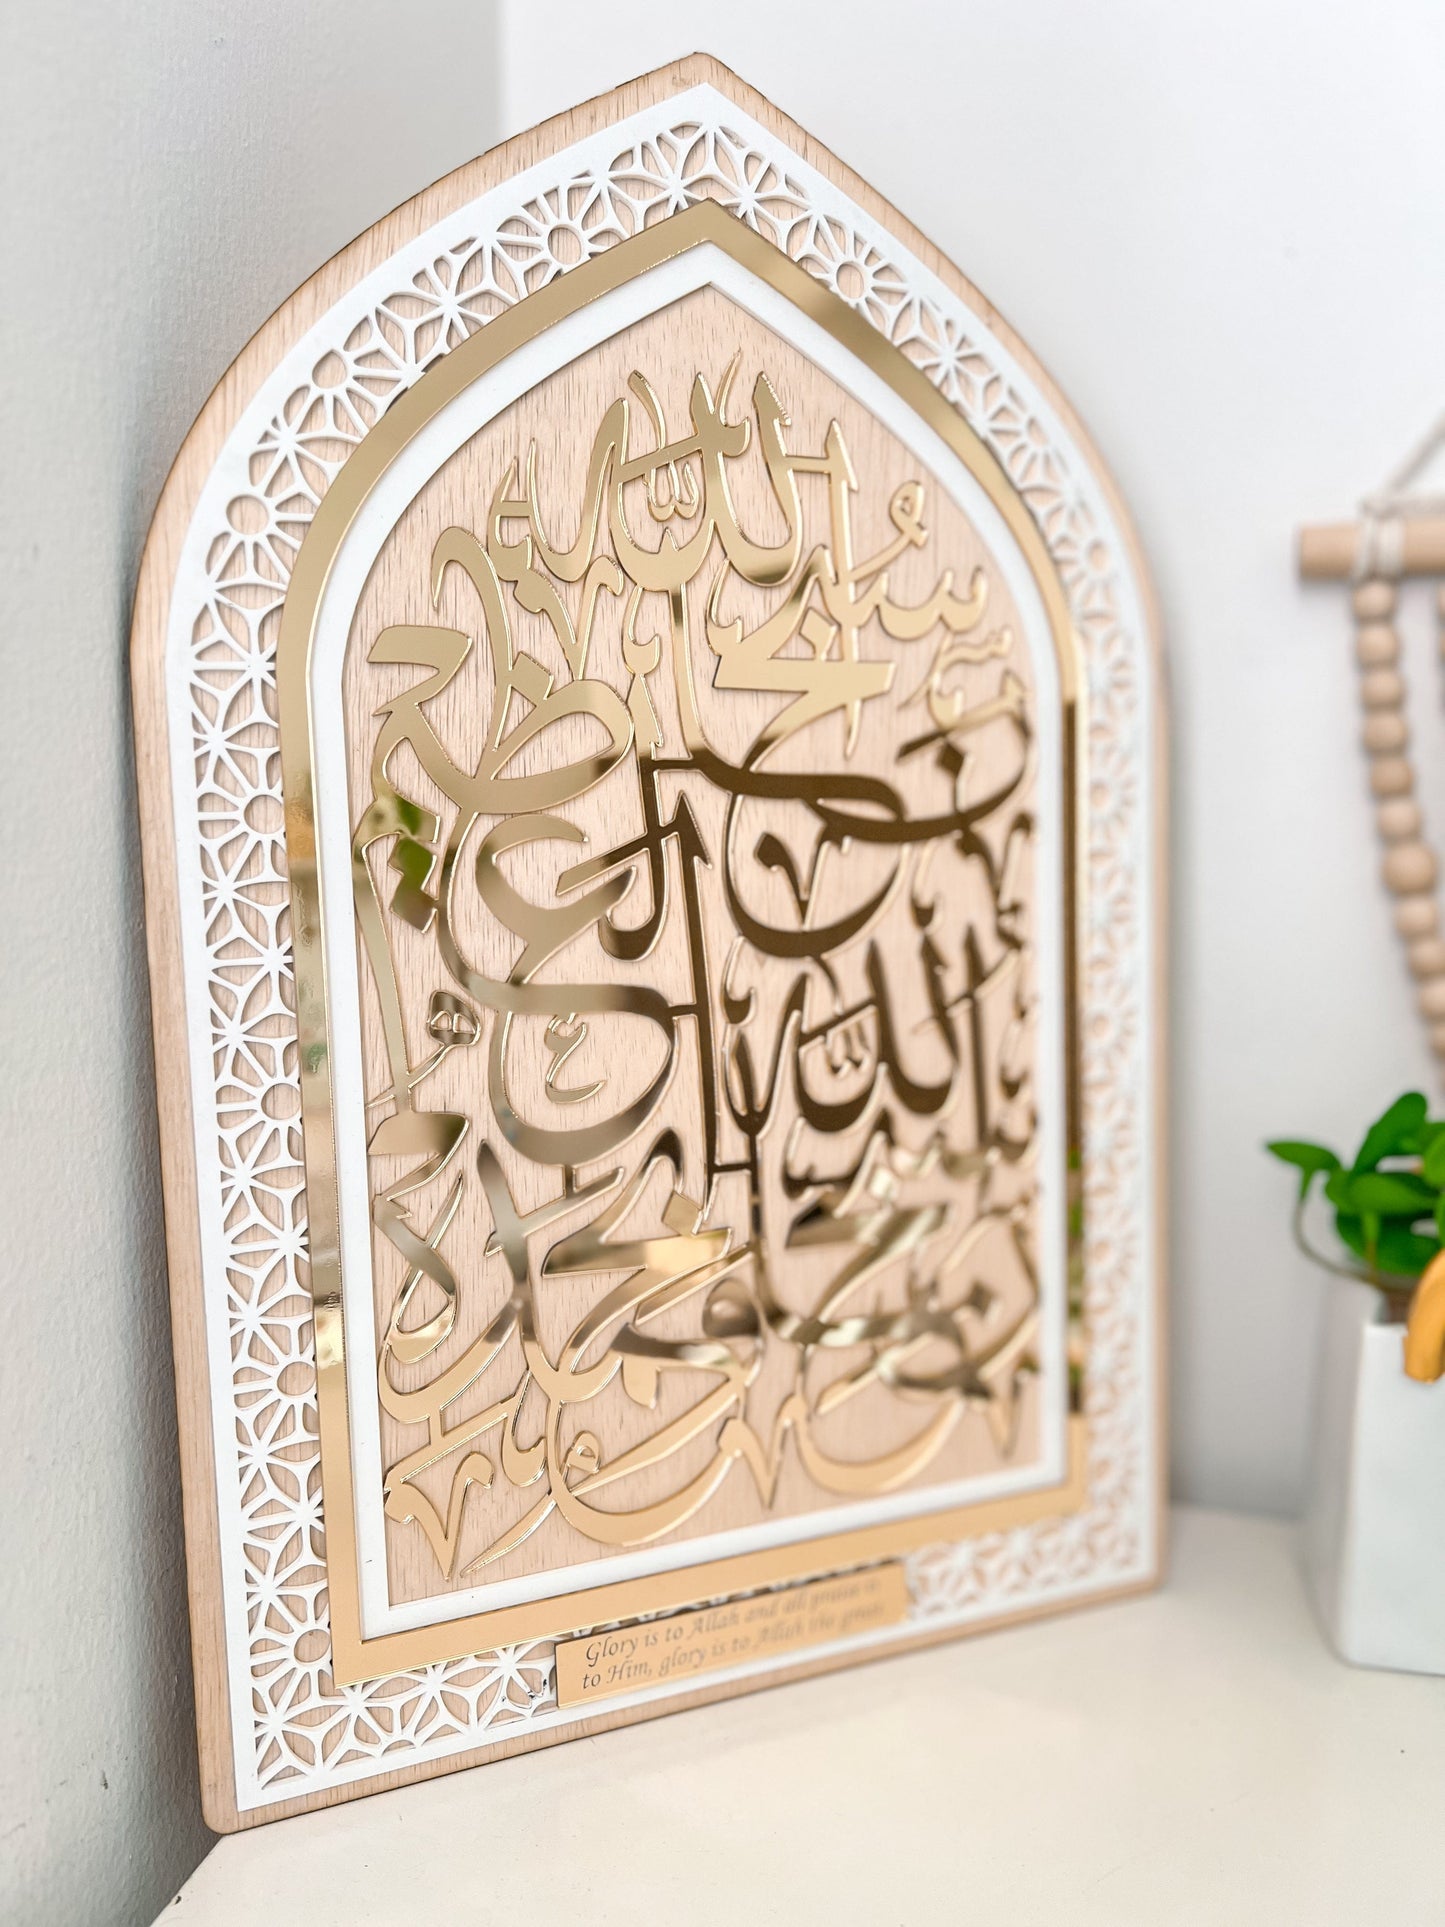 سبحان الله وبحمده
سبحان الله العظيم
Glory is to Allah and all praise is
to Him, glory is to Allah the great.